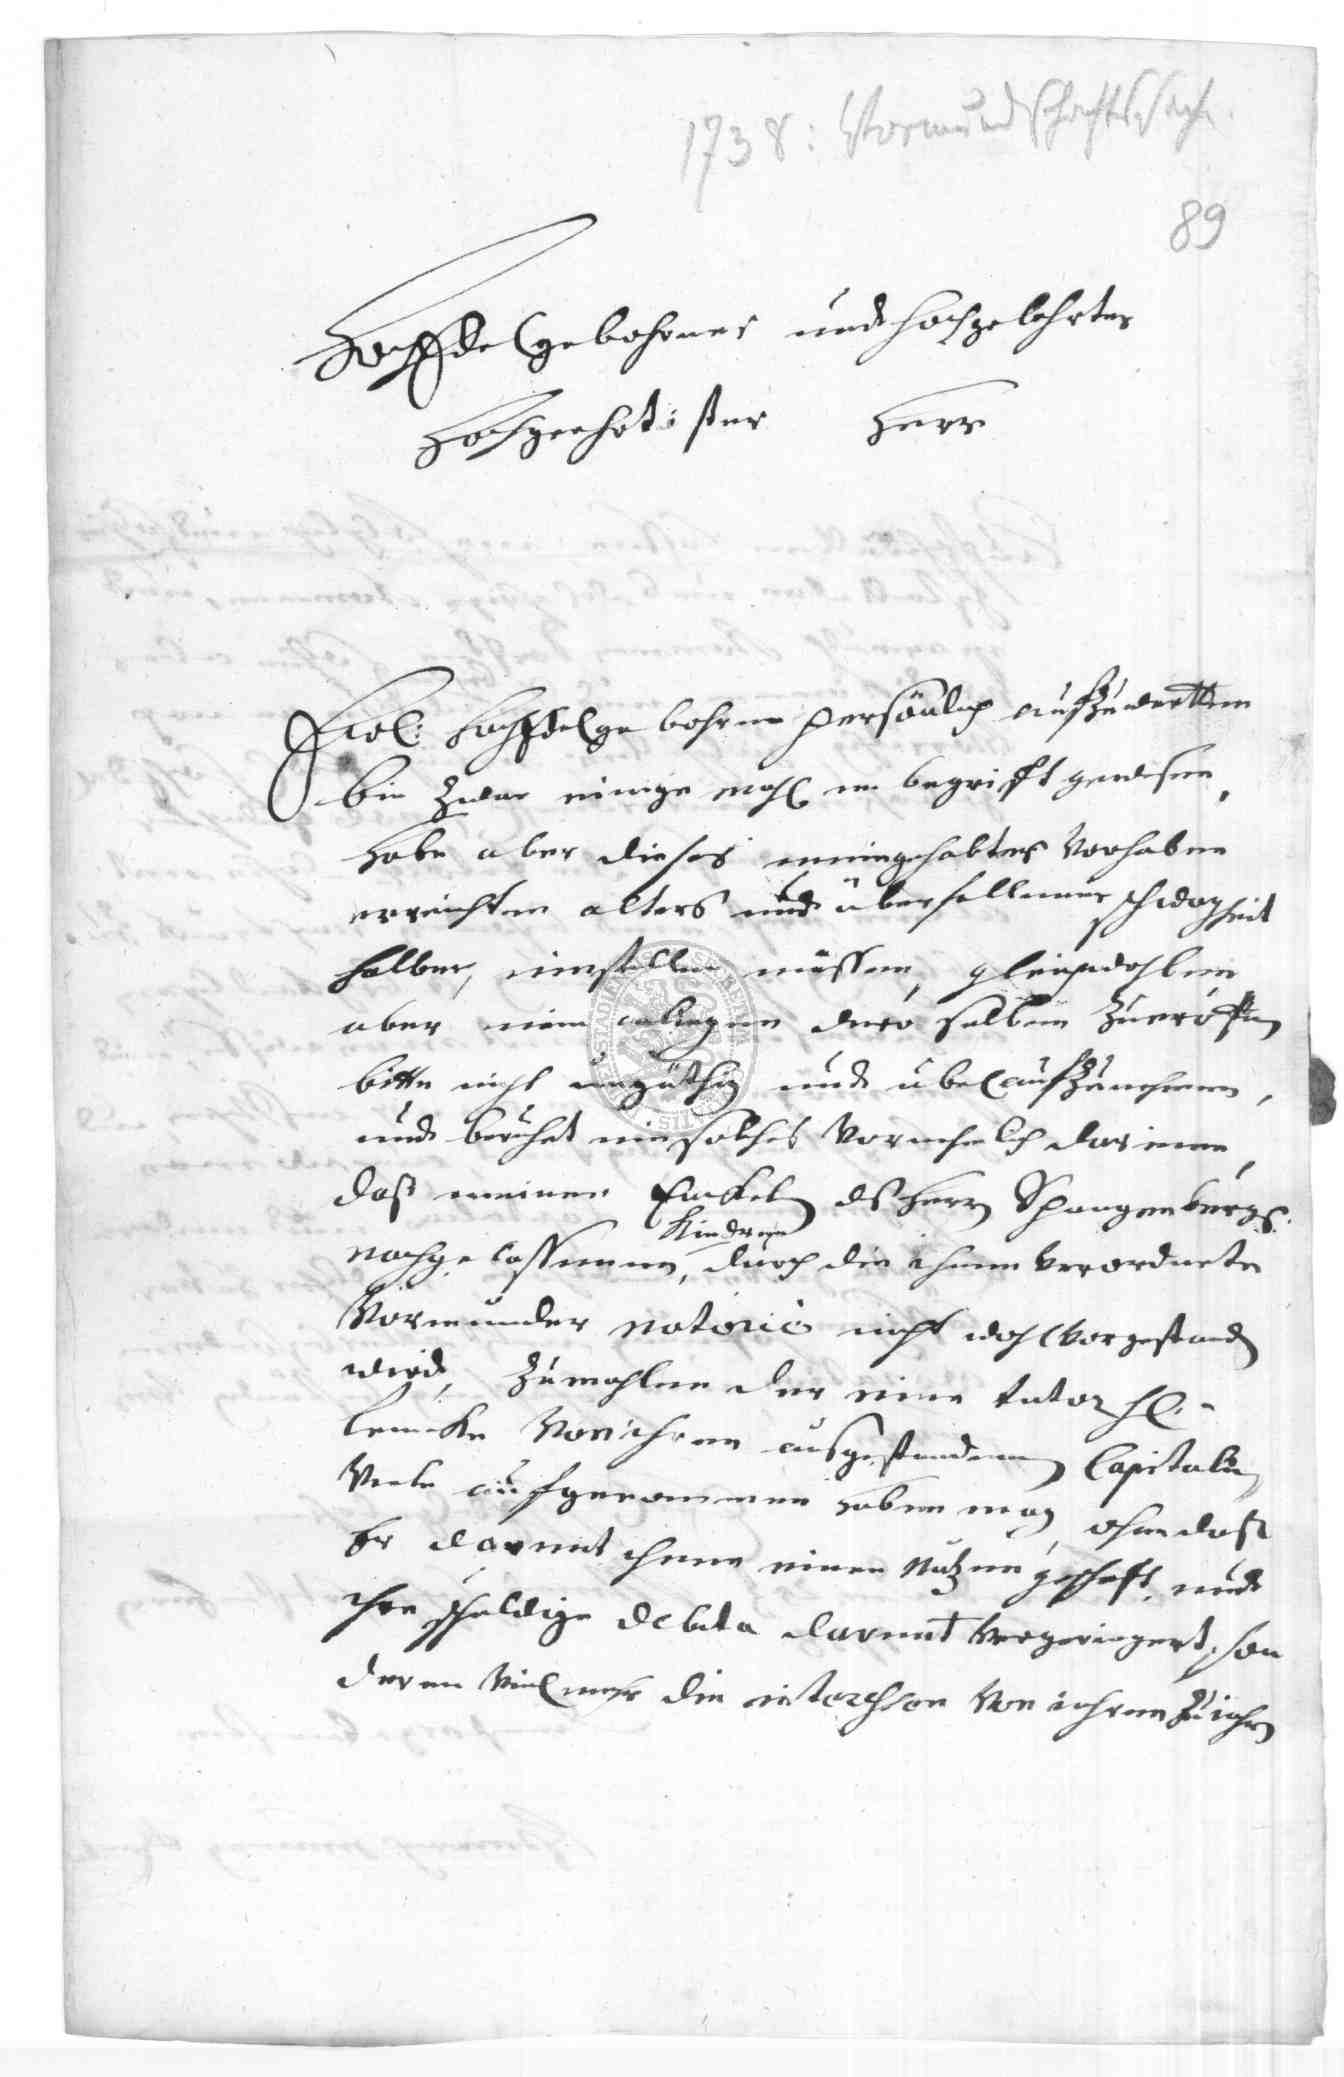 1738: Vormundschaftssache.
89
HochEdelgebohrner und hochgelehrter
Hochgeehrtister Herr
Ewl: HochEdelgebohrne persönlich aufzuwartten
bin zwar einige mahl im begrifft gewesen,
habe aber dieses meingehabtes Vorhaben
erreichten alters und überfallener schwagheit
halber, einstellen müssen, gleichwohlen
aber mein anliegen dero selben zueröffn
bitte nicht ungüthig und übel aufzunehmen,
und beruhet ein solches Vornehmlich darinne,
daß meinen Enckeln des Herrn Spangenbergs.
nachgelassenen Kindren, durch die ihnen verordnete
Vormunder notorie nicht wohl Vorgestanden
wird, zumahlen der eine tutor H.
Lemcke Von ihren ausgestandenen Capitalien
Viele aufgenommen haben mag, ohne daß
Er darmit ihnen einen Nutzen geschaft, und
ihre schuldige debita darmit Vergeringert, son
deren Vielmehr die interessen Von iahren zu iahrn